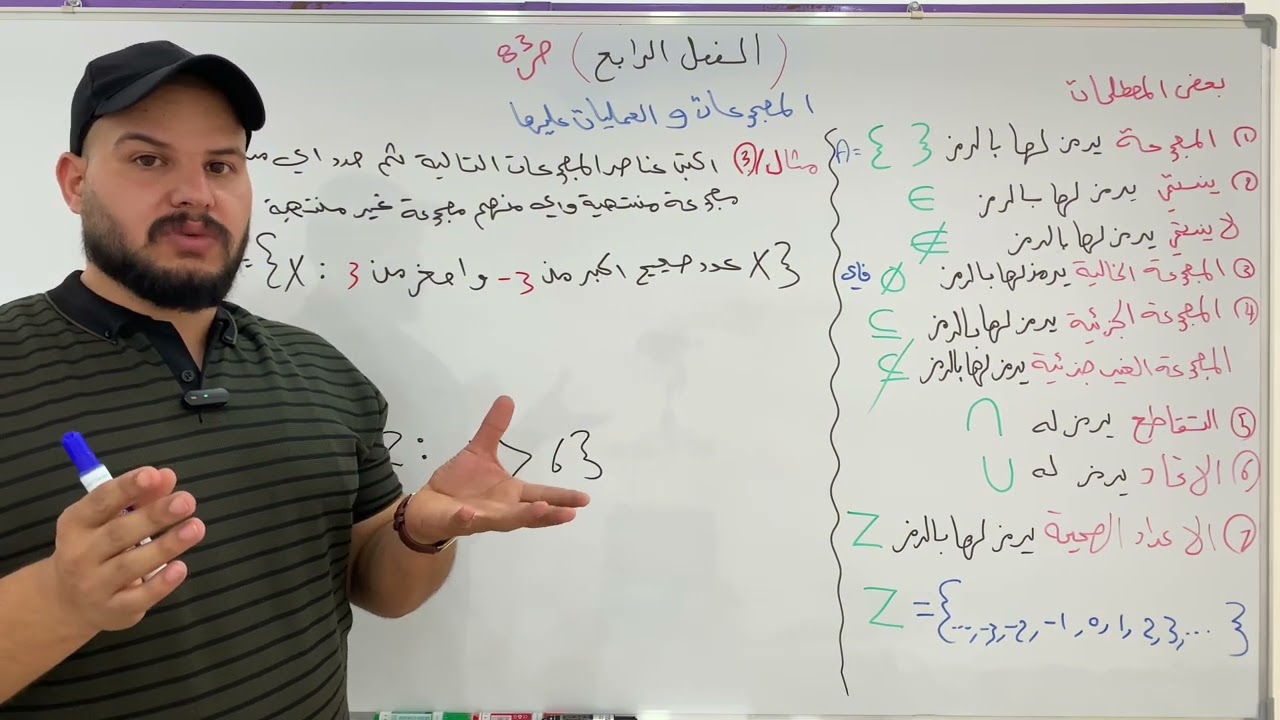 (الفصل الرابع) ص83
المجموعات و العمليات عليها
مثال/③ اكتب عناصر المجموعات التالية ثم حدد اي
مجموعة منتهية واي منهم مجموعة غير منتهية
={X : 3 واصغر من -3 عدد صحيح اكبر من X}
: > 6}
بعض المصطلحات
① المجموعة يرمز لها بالرمز { } A=
② ينتمي يرمز لها بالرمز ∈
لا ينتمي يرمز لها بالرمز ∉
③ المجموعة الخالية يرمز لها بالرمز ∅ فاي
④ المجموعة الجزئية يرمز لها بالرمز ⊆
المجموعة الغير جزئية يرمز لها بالرمز ⊈
⑤ التقاطع يرمز له ∩
⑥ الاتحاد يرمز له ∪
⑦ الاعداد الصحيحة يرمز لها بالرمز Z
Z = {...,-3,-2,-1,0,1,2,3,...}